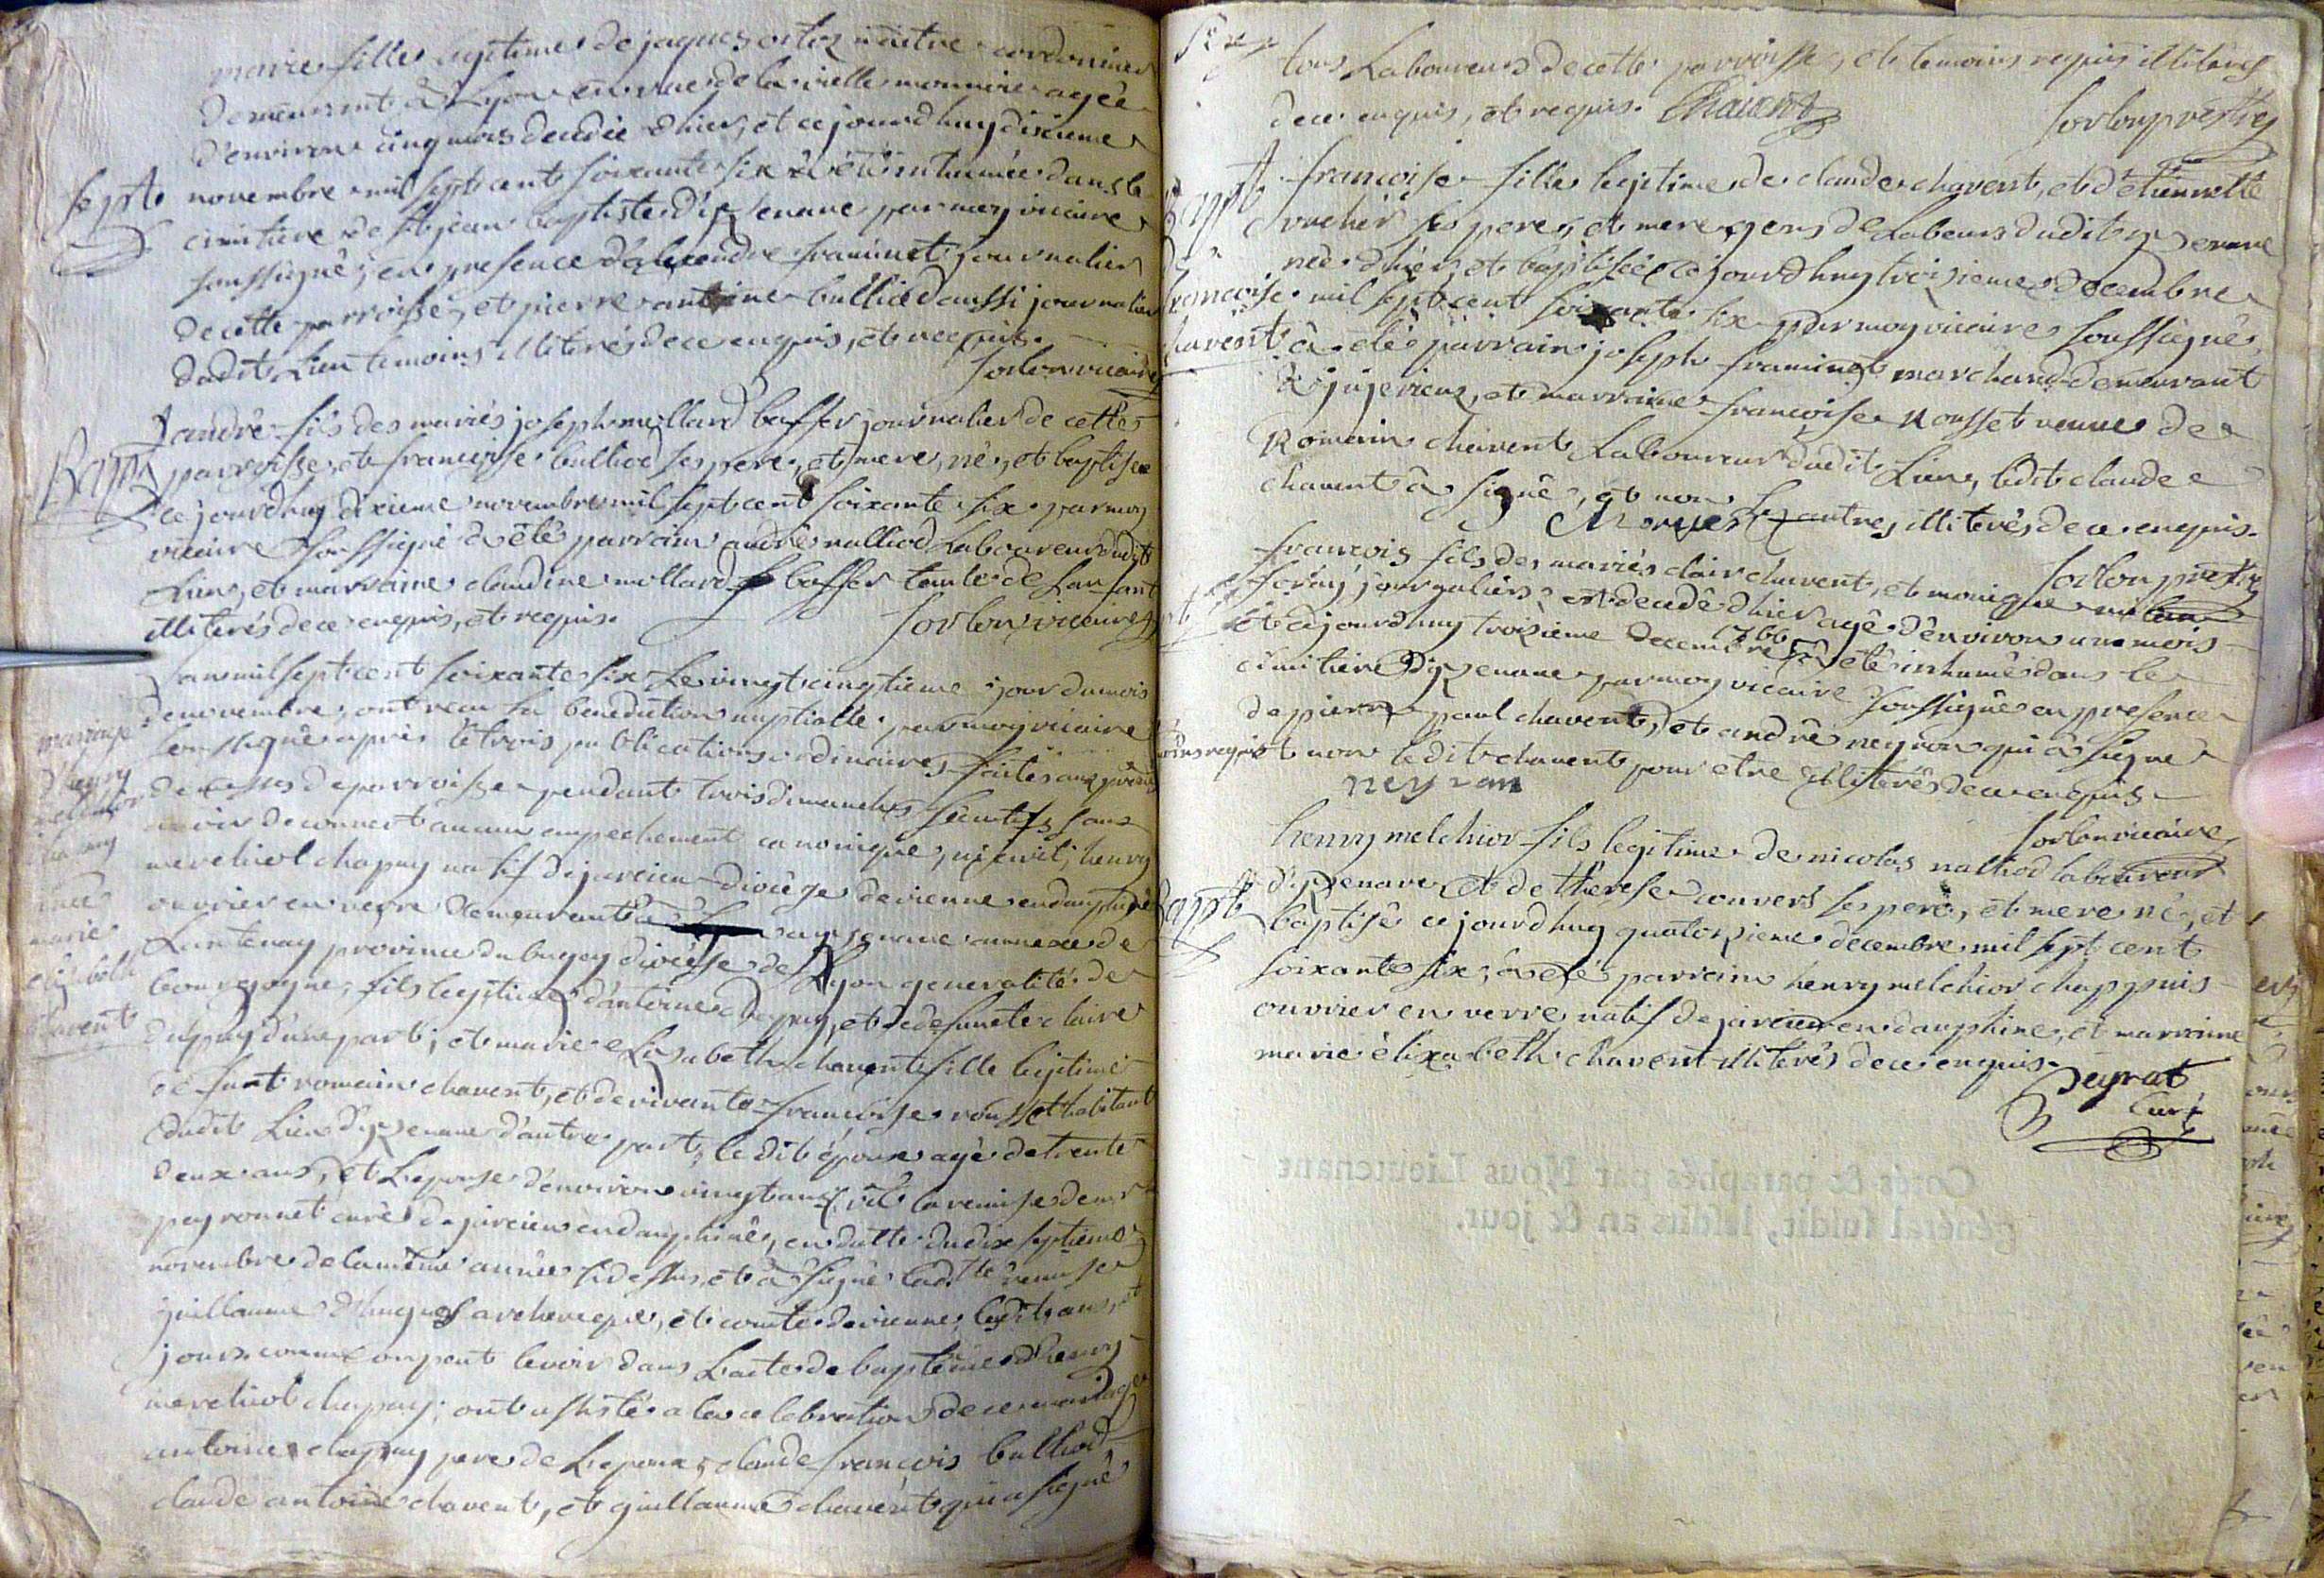 marie fille legitime de jaques ortiz maitre cordonnier
demeurant â Lyon en rue de la vielle monnoie agée
d'environ cinq mois decedée d'hier, et ce jourd'huy dixieme
sept. novembre mil sept cent soixante six â été inhumée dans le
cimitiere de st jean baptiste d'izenave par moy vicaire
soussigné, en presence d'alexandre framinet journalier
de cette parroisse, et pierre antoine bulliod aussi journalier
dudit Lieu temoins illiterés de ce enquis, et requis.
sorlon vicaire
andré fils des mariés joseph millard baffer journalier de cette
Bapt. parroisse, et françoise bulliod ses pere, et mere, né, et baptisé
ce jourd'huy dixieme novembre mil sept cent soixante six par moy
vicaire soussigné â été parrain andré nalliod Laboureur dudit
Lieu, et marraine claudine millard baffer tante de Lanfant
illiterés de ce enquis, et requis.
sorlon vicaire
Lan mil sept cent soixante six Le vingt cinqtieme jour du mois
mariage
de novembre, ont reçu la benediction nuptialle par moy vicaire
soussigné après lé trois publications ordinaires faites aux prônes
d'henry
de messes de parroisse pendant trois dimanches secutifs sans
avoir decouvert aucun empechement canonique, ni civil, henry
merchiol chapuy natif de jarcieu diocèse de vienne en dauphiné
ouvrier en verre demeurant a izenave annexe de
marie
Lantenay province du bugey diocése de Lyon generalité de
elizabeth
bourgogne, fils legitime d'antoine chapuy, et de defuncte claire
chavent
dupuy d'une part; et marie elizabeth chavent fille legitime
de funt romain chavent, et de vivante françoise rousset habitant
dudit Lieu d'izenave d'autre part, le dit époux agé de trente
deux ans, et Lepouse d'environ vingt ans, vû la remise de mr
peyronnet curé de jarcieu en dauphiné, en datte du dix septieme
novembre de la même année si dessus, et â signé lad.tte remise
guillaume d'hugues archeveque, et comte de vienne, lesdits ans, et
jour comme on peut le voir dans Lacte de baptême d'henry
merchiol chapuy; ont assisté a la celebration de ce mariage
antoine chapuy pere de Lepoux, claude françois bulliod,
claude antoine chavent, et guillaume chavent qui a signé
tous Laboureurs de cette parroisse, et temoins requis illiterés
de ce enquis, et requis. Chavent
sorlon prestre
Bapt. françoise fille legitime de claude chavent, et d'etiennette
rochér ses pere, et mere gens de Labeurs dudit izenave
de née d'hier, et baptisée ce jourd'huy troisieme decembre
françoise mil sept cent soixante six par moy vicaire soussigné,
chavent â été parrain joseph framinet marchand demeurant
â jujerieux, et marraine françoise Rousset veuve de
Romain chavent Laboureur dudit Lieu, ledit claude
chavent â signé, et non Les autres illiterés de ce enquis.
sorlon prestre
françois fils des mariés clair chavent, et monique
journaliers est decedé d'hier agé d'environ un mois
et ce jourd'huy troisieme decembre 1766 â été inhumé dans le
cimitiere d'izenave par moy vicaire soussigné en presence
de pierre paul chavent, et andré neyron qui â signé
requis et non ledit chavent pour etre illiteré de ce enquis
neyron
sorlon vicaire
henry melchior fils legitime de nicolas nalliod laboureur
Bapt. d'izenave et de therese convers ses pere, et mere né, et
baptisé ce jourd'huy quatorzieme decembre mil sept cent
soixante six, â été parrain henry melchior chappuis
ouvrier en verre natif de jarcieu en dauphiné, et marraine
marie élizabeth chavent illiterés de ce enquis.
Peyrat
curé
Cotés & paraphés par Nous Lieutenant
général susdit, lesdits an & jour.